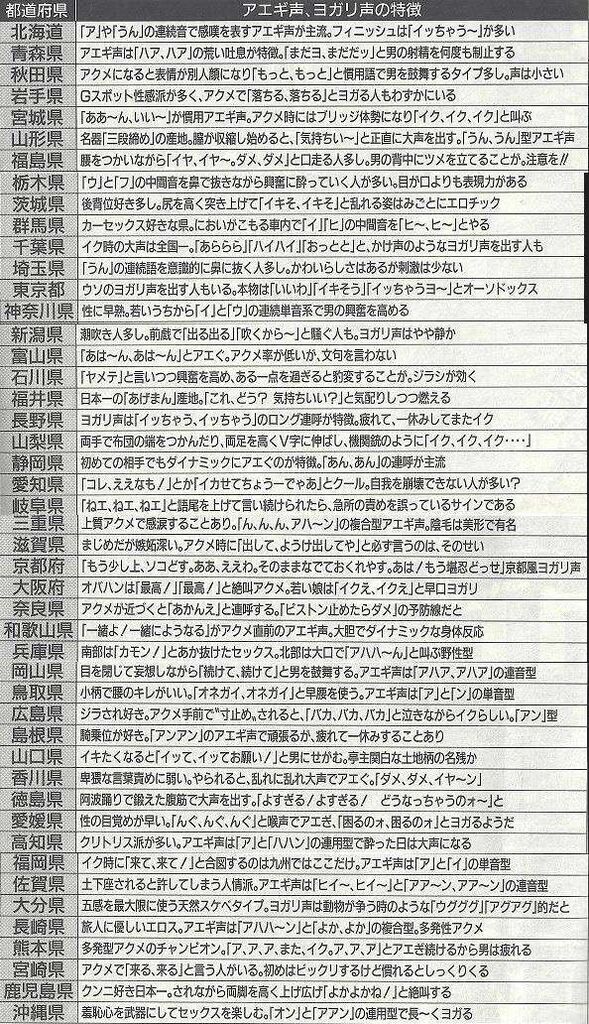 都道府県 アエギ声、ヨガリ声の特徴
北海道 「ア」や「うん」の連続音で感嘆を表すアエギ声が主流。フィニッシュは「イッちゃう〜」が多い
青森県 アエギ声は「ハア、ハア」の荒い吐息が特徴。「まだヨ、まだだッ」と男の射精を何度も制止する
秋田県 アクメになると表情が別人顔になり「もっと、もっと」と慣用語で男を鼓舞するタイプ多し。声は小さい
岩手県 Gスポット性感派が多く、アクメで「落ちる、落ちる」とヨガる人もわずかにいる
宮城県 「ああ〜ん、いい〜」が慣用アエギ声。アクメ時にはブリッジ体勢になり「イク、イク、イク」と叫ぶ
山形県 名器「三段締め」の産地。膣が収縮し始めると、「気持ちい〜」と正直に大声を出す。「うん、うん」型アエギ声
福島県 腰をつかいながら「イヤ、イヤ〜。ダメ、ダメ」と口走る人多し。男の背中にツメを立てることが。注意を!!
栃木県 「ウ」と「フ」の中間音を鼻で抜きながら興奮に酔っていく人が多い。目が口よりも表現力がある
茨城県 後背位好き多し。尻を高く突き上げて「イキそ、イキそ」と乱れる姿はみごとにエロチック
群馬県 カーセックス好きな県。においがこもる車内で「イ」「ヒ」の中間音を「ヒ〜、ヒ〜」とやる
千葉県 イク時の大声は全国一。「あららら」「ハイハイ」「おっとと」と、かけ声のようなヨガリ声を出す人も
埼玉県 「うん」の連続語を意識的に鼻に抜く人多し。かわいらしさはあるが刺激は少ない
東京都 ウソのヨガリ声を出す人もいる。本物は「いいわ」「イキそう」「イッちゃうヨ〜」とオーソドックス
神奈川県 性に早熟。若いうちから「イ」と「ウ」の連続単音系で男の興奮を高める
新潟県 潮吹き人多し。前戯で「出る出る」「吹くから〜」と騒ぐ人も。ヨガリ声はやや静か
富山県 「あは〜ん、あは〜ん」とアエグ。アクメ率が低いが、文句を言わない
石川県 「ヤメテ」と言いつつ興奮を高め、ある一点を過ぎると豹変することが。ジラシが効く
福井県 日本一の「あげまん」産地。「これ、どう? 気持ちいい?」と気配りしつつ燃える
長野県 ヨガリ声は「イッちゃう、イッちゃう」のロング連呼が特徴。疲れて、一休みしてまたイク
山梨県 両手で布団の端をつかんだり、両足を高くV字に伸ばし、機関銃のように「イク、イク、イク・・・・」
静岡県 初めての相手でもダイナミックにアエぐのが特徴。「あん、あん」の連呼が主流
愛知県 「コレ、ええなも!」とか「イカせてちょうーでゃあ」とクール。自我を崩壊できない人が多い?
岐阜県 「ねエ、ねエ、ねエ」と語尾を上げて言い続けられたら、急所の責めを誤っているサインである
三重県 上質アクメで感涙することあり。「ん、ん、ん、アハ〜ン」の複合型アエギ声。陰毛は美形で有名
滋賀県 まじめだが嫉妬深い。アクメ時に「出して、ようけ出してや」と必ず言うのは、そのせい
京都府 「もう少し上、ソコどす。ああ、ええわ。そのままなでておくれやす。あは!もう堪忍どっせ」京都風ヨガリ声
大阪府 オバハンは「最高!」「最高!」と絶叫アクメ。若い娘は「イクえ、イクえ」と早口ヨガリ
奈良県 アクメが近づくと「あかんえ」と連呼する。「ピストン止めたらダメ」の予防線だと
和歌山県 「一緒よ!一緒にようなる」がアクメ直前のアエギ声。大胆でダイナミックな身体反応
兵庫県 南部は「カモン!」とあか抜けたセックス。北部は大口で「アハハ〜ん」と叫ぶ野性型
岡山県 目を閉じて妄想しながら「続けて、続けて」と男を鼓舞する。アエギ声は「アハア、アハア」の連音型
鳥取県 小柄で腰のキレがいい。「オネガイ、オネガイ」と早腰を使う。アエギ声は「ア」と「ン」の単音型
広島県 ジラされ好き。アクメ手前で“寸止め”されると、「バカ、バカ、バカ」と泣きながらイクらしい。「アン」型
島根県 騎乗位が好き。「アンアン」のアエギ声で頑張るが、疲れて一休みすることあり
山口県 イキたくなると「イッて、イッてお願い!」と男にせがむ。亭主関白な土地柄の名残か
香川県 卑猥な言葉責めに弱い。やられると、乱れに乱れ大声でアエぐ。「ダメ、ダメ、イヤ〜ン」
徳島県 阿波踊りで鍛えた腹筋で大声を出す。「よすぎる!よすぎる! どうなっちゃうのォ〜」と
愛媛県 性の目覚めが早い。「んぐ、んぐ、んぐ」と喉声でアエぎ、「困るのォ、困るのォ」とヨガるようだ
高知県 クリトリス派が多い。アエギ声は「ア」と「ハハン」の連用型で酔った日は大声になる
福岡県 イク時に「来て、来て!」と合図するのは九州ではここだけ。アエギ声は「ア」と「イ」の単音型
佐賀県 土下座されると許してしまう人情派。アエギ声は「ヒイ〜、ヒイ〜」と「アア〜ン、アア〜ン」の連音型
大分県 五感を最大限に使う天然スケベタイプ。ヨガリ声は動物が争う時のような「ウググ」「アグアグ」的だと
長崎県 旅人に優しいエロス。アエギ声は「アハハ〜ン」と「よか、よか」の複合型。多発性アクメ
熊本県 多発型アクメのチャンピオン。「ア、ア、ア、また、イク。ア、ア、ア」とアエぎ続けるから男は疲れる
宮崎県 アクメで「来る、来る」と言う人がいる。初めはビックリするけど慣れるとしっくりくる
鹿児島県 クンニ好き日本一。されながら両脚を高く上げ広げ「よかよかね!」と絶叫する
沖縄県 羞恥心を武器にしてセックスを楽しむ。「オン」と「アアン」の連用型で長〜くヨガる